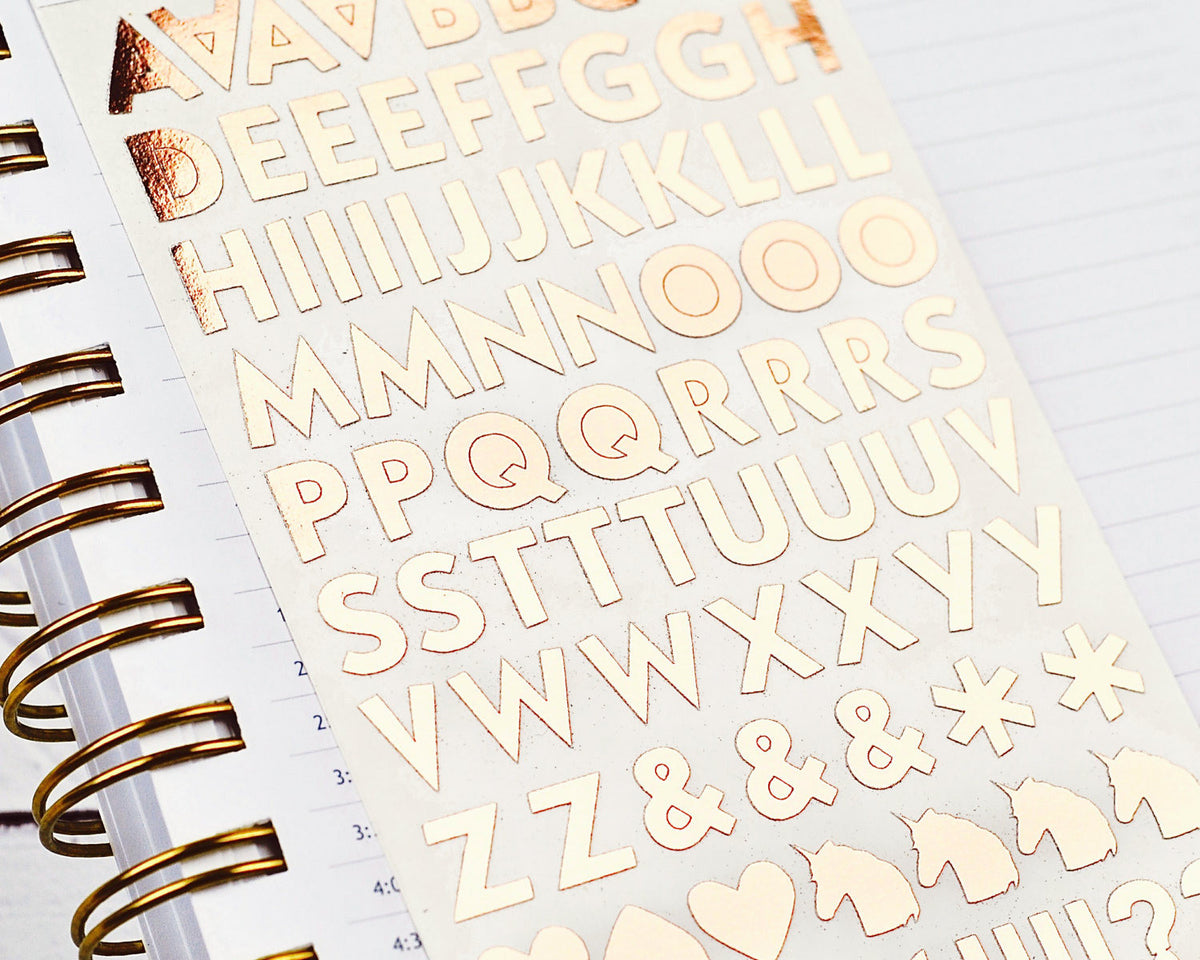 AAAABB
DEEEFFGGH
HIIIIJJKKLLL
MMNNOOO
PPQQRRRS
SSTTTUUUV
VWWXXYY
ZZ&&&**
2
2:
3:
3:
4:0
4:3